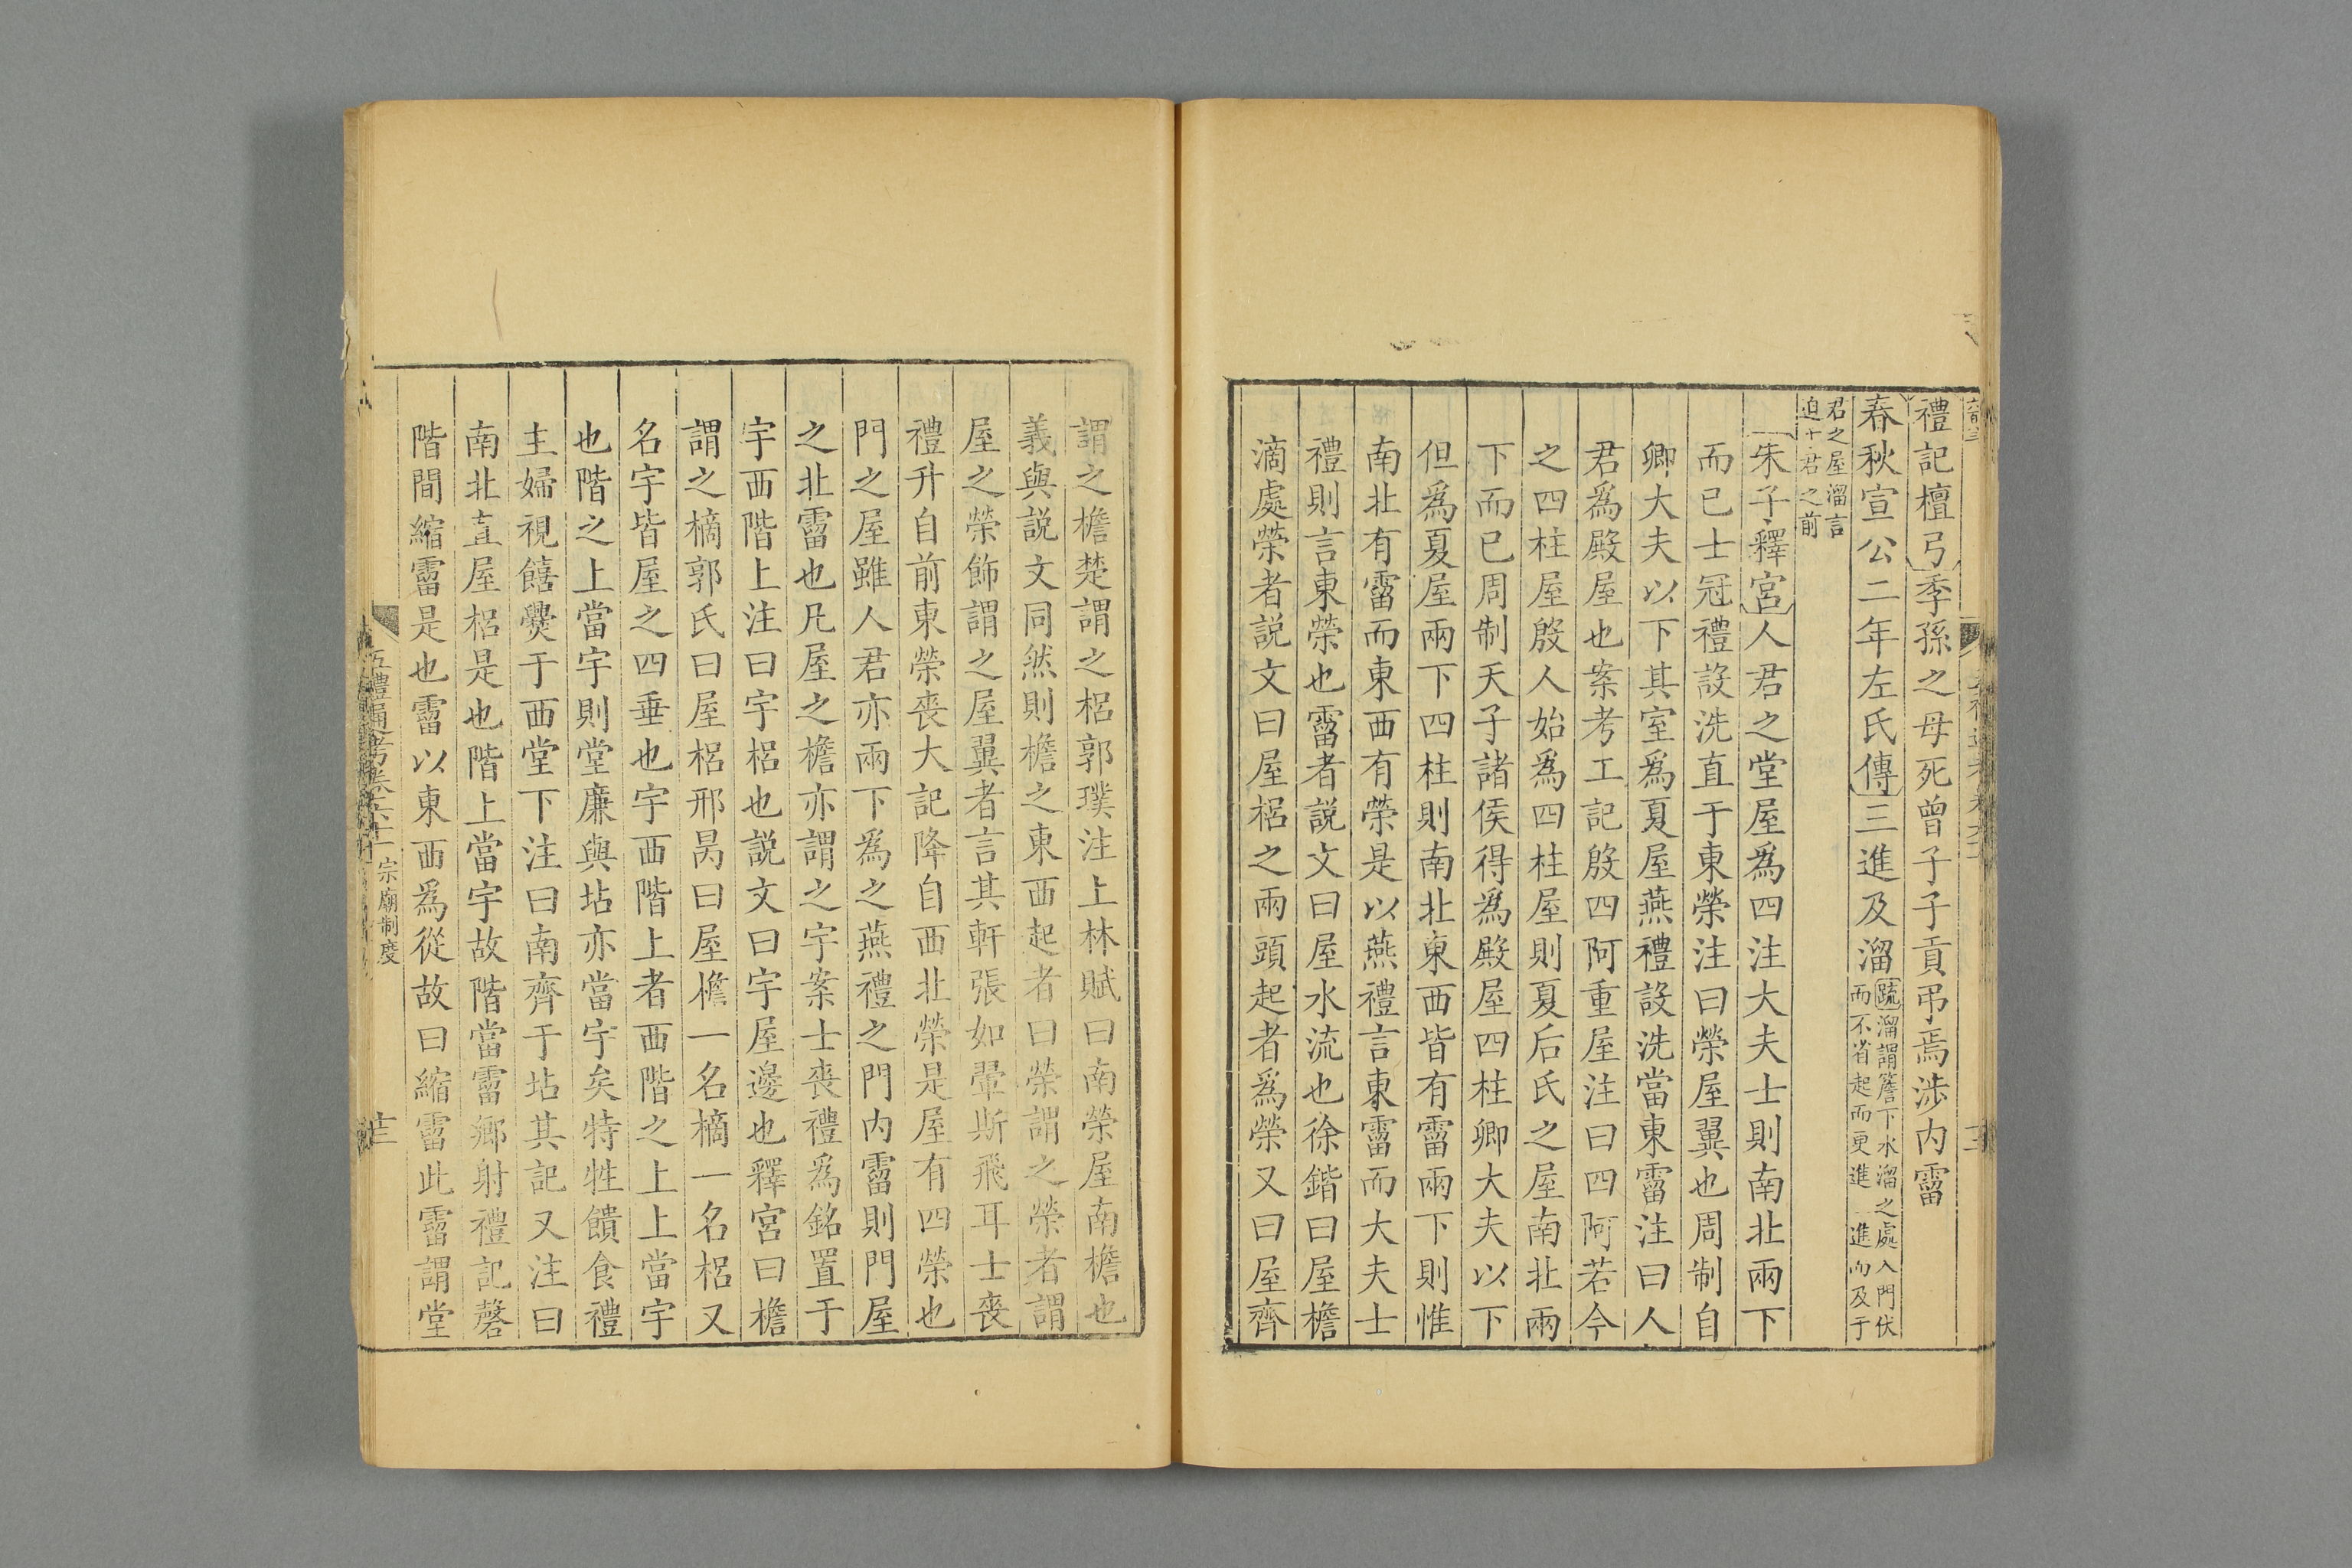 禮記檀弓季孫之母死曾子子貢弔焉涉内霤
春秋宣公二年左氏傳三進及溜
疏溜謂簷下水溜之處入門伏
而不省起而更進 進而及于
君之屋溜言
迫于君之前
朱子釋宮人君之堂屋爲四注大夫士則南北兩下
而已士冠禮設洗直于東榮注曰榮屋翼也周制自
卿大夫以下其室爲夏屋燕禮設洗當東霤注曰人
君爲殿屋也案考工記殷四阿重屋注曰四阿若今
之四柱屋殷人始爲四柱屋則夏后氏之屋南北兩
下而已周制天子諸侯得爲殿屋四柱卿大夫以下
但爲夏屋兩下四柱則南北東西皆有霤兩下則惟
南北有霤而東西有榮是以燕禮言東霤而大夫士
禮則言東榮也霤者説文曰屋水流也徐鍇曰屋檐
滴處榮者説文曰屋梠之兩頭起者爲榮又曰屋齊
謂之檐楚謂之梠郭璞注上林賦曰南榮屋南檐也
義與説文同然則檐之東西起者曰榮謂之榮者謂
屋之榮飾謂之屋翼者言其軒張如翬斯飛耳士喪
禮升自前東榮喪大記降自西北榮是屋有四榮也
門之屋雖人君亦兩下爲之燕禮之門内霤則門屋
之北霤也凡屋之檐亦謂之宇案士喪禮爲銘置于
宇西階上注曰宇梠也説文曰宇屋邊也釋宮曰檐
謂之樀郭氏曰屋梠邢昺曰屋檐一名樀一名梠又
名宇皆屋之四垂也宇西階上者西階之上上當宇
也階之上當宇則堂廉與坫亦當宇矣特牲饋食禮
主婦視饎爨于西堂下注曰南齊于坫其記又注曰
南北直屋梠是也階上當宇故階當霤鄉射禮記磬
階間縮霤是也霤以東西爲從故曰縮霤此霤謂堂
五禮通考卷六十 宗廟制度